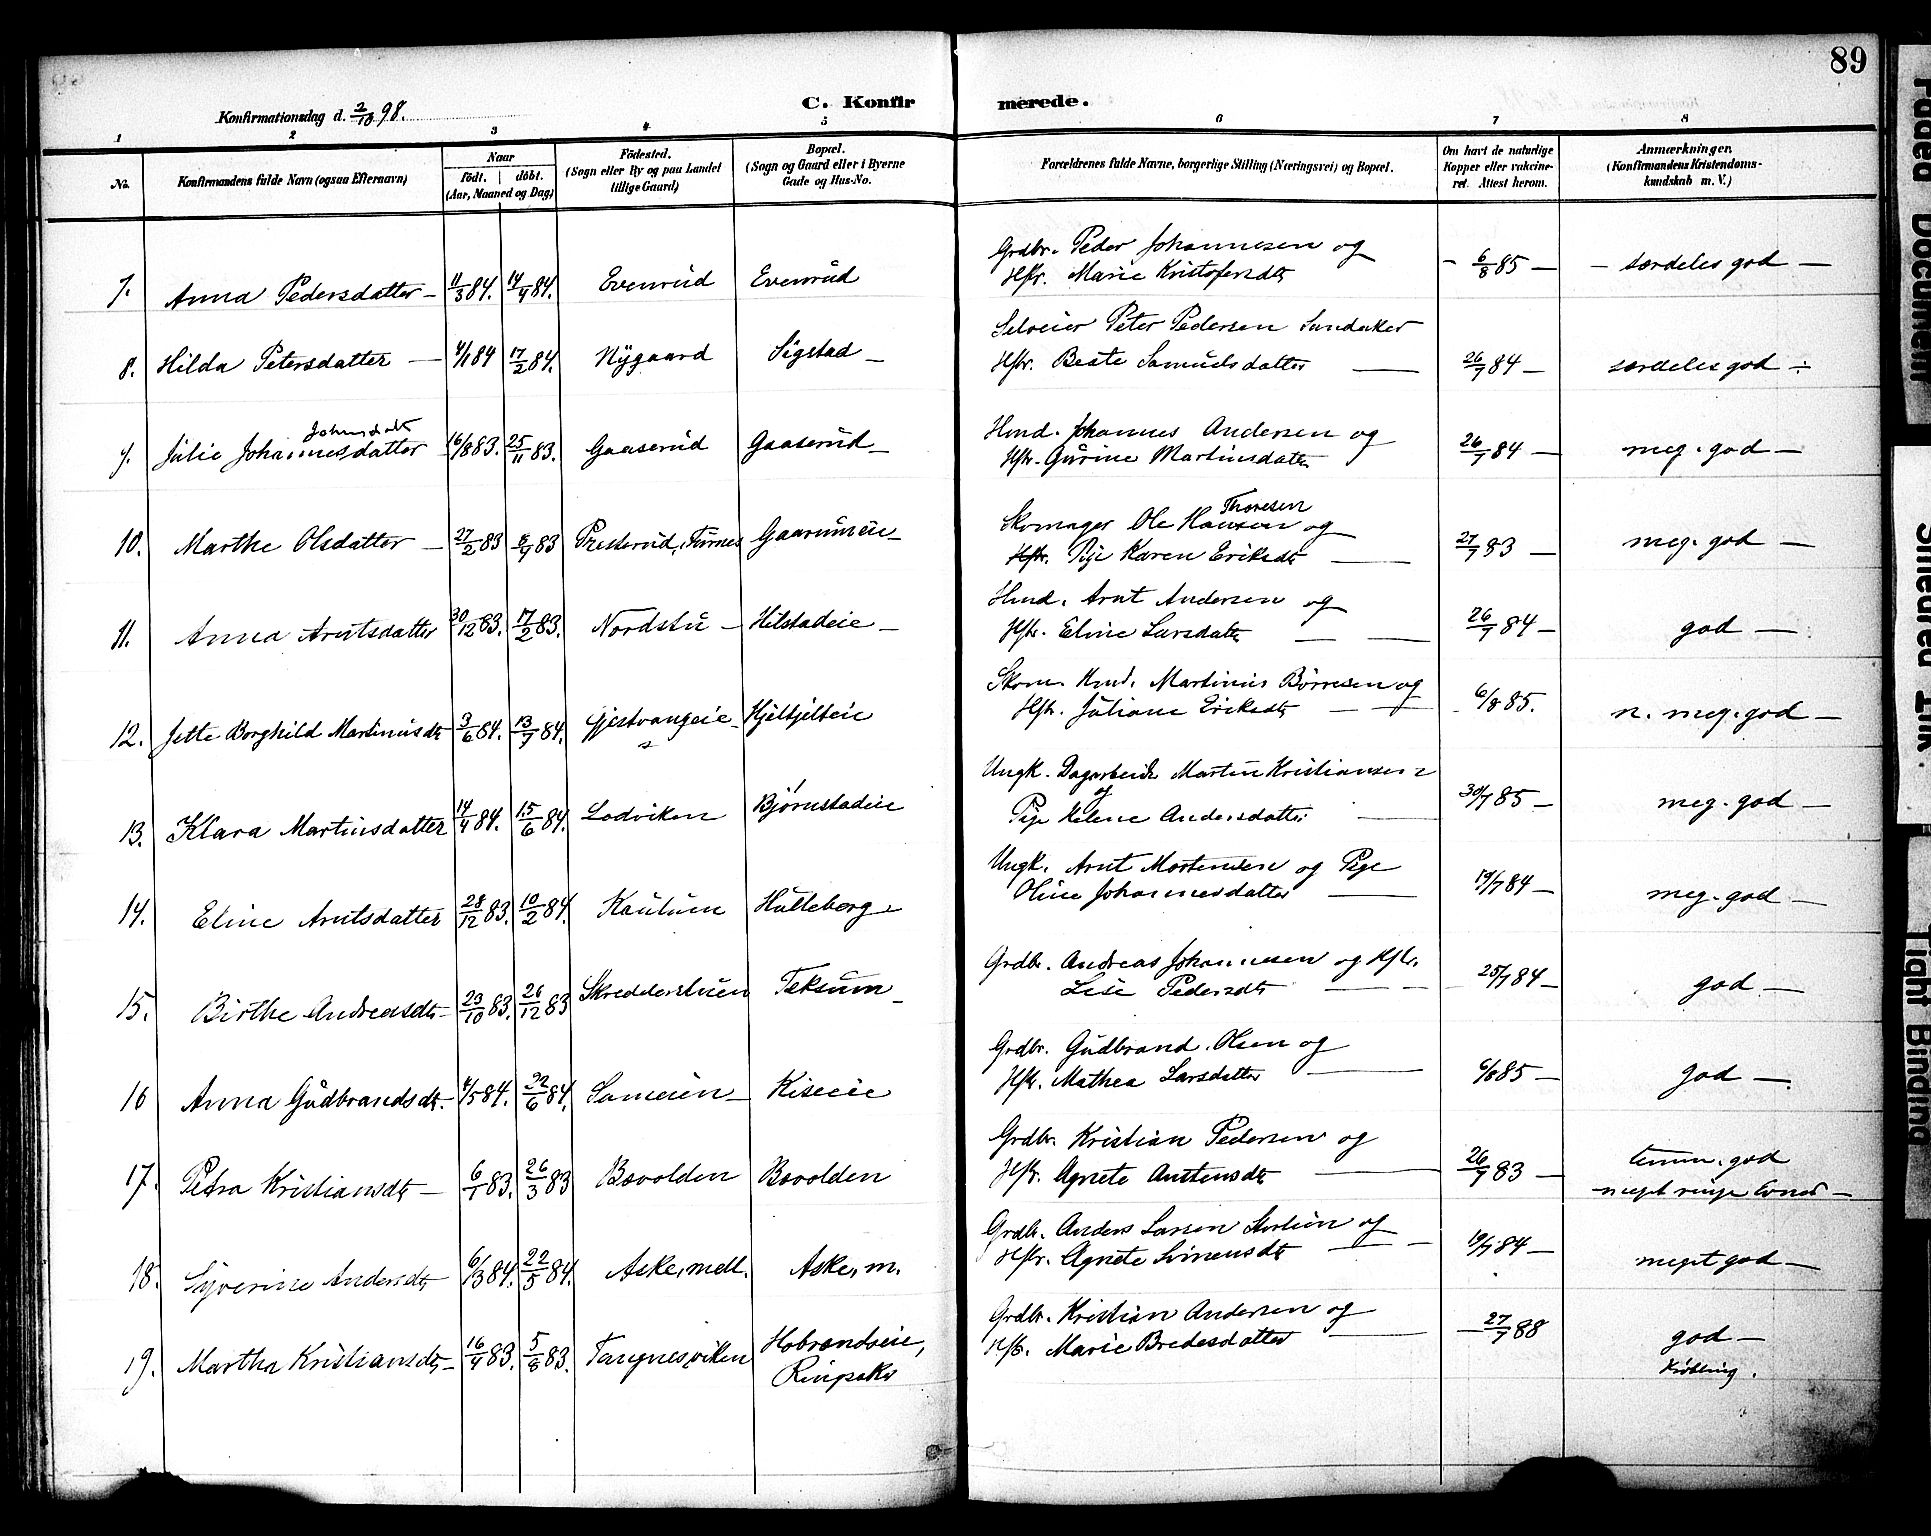 89
Konfirmationsdag d. 2/10 98.
C. Konfirmerede.
1 2 3 4 5 6 7 8
No.
Konfirmandens fulde Navn (ogsaa Efternavn)
Naar født. | døbt. (Aar, Maaned og Dag)
Fødested. (Sogn eller By og paa Landet tillige Gaard)
Bopæl. (Sogn og Gaard eller i Byerne Gade og Hus-No.
Forældrenes fulde Navne, borgerlige Stilling (Næringsvei) og Bopæl.
Om havt de naturlige Kopper eller vakcineret. Attest herom.
Anmærkninger. (Konfirmandens Kristendomskundskab m. V.)
7. Anna Pedersdatter – 11/3 84. 14/4 84. Evenrud Evenrud Grdbr. Peder Johannesen og
Hfr. Marie Kristofersdtr – 6/8 85 – – særdeles god –
8. Hilda Petersdatter – 4/1 84 17/2 84. Nygaard Sigstad – Selveier Peter Pedersen Sandaker
Hfr. Beate Samuelsdatter – 26/7 84 – særdeles god –
Johnsdatr
9. Julie Johannesdatter 16/8 83. 25/11 83. Gaaserud Gaaserud – Hmd. Johannes Andersen og
Hfr. Gurine Martinsdatr 26/7 84 – meg. god –
Thoresen
10. Marthe Olsdatter – 27/2 83 8/4 83 Presterud, Furnes Gaarumeie – Skomager Ole Hansen og
Hfr. Pige Karen Eriksdtr – 27/7 83 – meg. god –
11. Anna Arntsdatter 30/12 83. 17/2 83. Nordstu – Hilstadeie – Hmd. Arnt Andersen og
Hfr. Eline Larsdatr – – 26/7 84 – god –
12. Jette Borghild Martinusdtr 3/6 84. 13/7 84. Gjestvangeie – Hjeltjelteie Skom. Hmd. Martinus Børresen og
Hfr. Juliane Eriksdtr – – 6/8 85. n. meg. god –
13. Klara Martinsdatter 14/4 84. 15/6 84. Lodviken Bjørnstadeie Ungk. Dagarbeider Martin Kristiansen
og
Pige Helene Andersdatter – 30/7 85 – meg. god –
14. Eline Arntsdatter 28/12 83. 10/2 84. Kaulum Hulleberg – Ungk. Arnt Mortensen og Pige
Oline Johannesdatter – 19/7 84 – meg. god –
15. Birthe Andreasdtr – 23/10 83. 26/12 83 Skredderstuen Teksum – Grdbr. Andreas Johannesen og Hfr.
Lise Pedersdtr – – 25/7 84 – god –
16 Anna Gudbrandsdtr. 4/5 84. 22/6 84. Sameien – Kiseeie Grdbr. Gudbrand Olsen og
Hfr. Mathea Larsdatter – 6/8 85 – god –
17. Petra Kristiansdtr – 6/1 83. 26/3 83 Bævolden Bævolden Grdbr. Kristian Pedersen og
Hfr. Agnete Austensdtr – 26/7 83 – temm. god
meget ringe Evner –
18. Syverine Andersdtr 6/3 84. 22/5 84. Aske, mell. Aske, m. Grdbr. Anders Larsen Stortien og
Hfr. Agnete Simensdtr – – 19/7 84 – meget god –
19. Martha Kristiansdtr – 16/4 83. 5/8 83. Tangnesviken Hobrandseie,
Ringsaker Grdbr. Kristian Andersen og
Hfr. Marie Bredesdatter – – 27/7 88 god –
Krøbling.
Faded Document
Smeared Ink.
Tight Binding